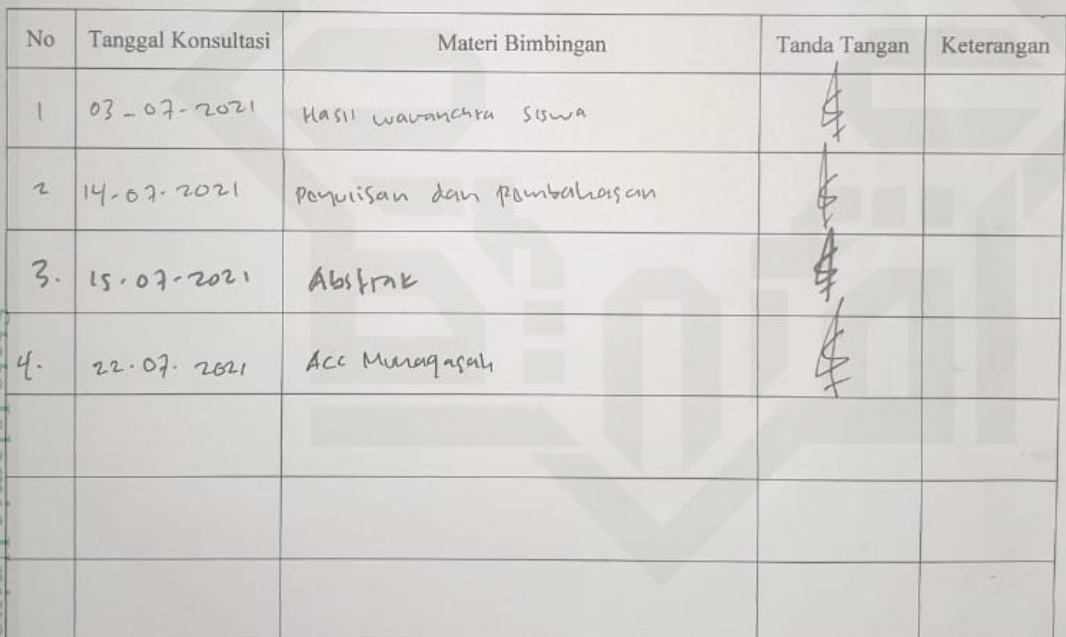 No Tanggal Konsultasi Materi Bimbingan Tanda Tangan Keterangan
1 03-07-2021 Hasil wawanchra siswa
2 14-07-2021 Penulisan dan Pembahasan
3. 15-07-2021 Abstrak
4. 22.07.2021 Acc Munaqasah